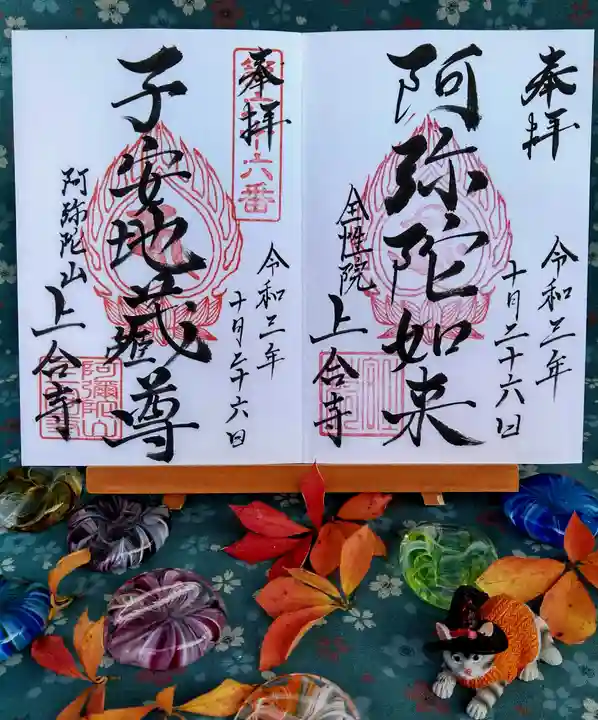 奉拝
阿弥陀如来
令和三年
十月二十六日
全性院
上合寺
奉拝
第二十六番
子安地蔵尊
令和三年
十月二十六日
阿弥陀山
上合寺
阿彌陀山